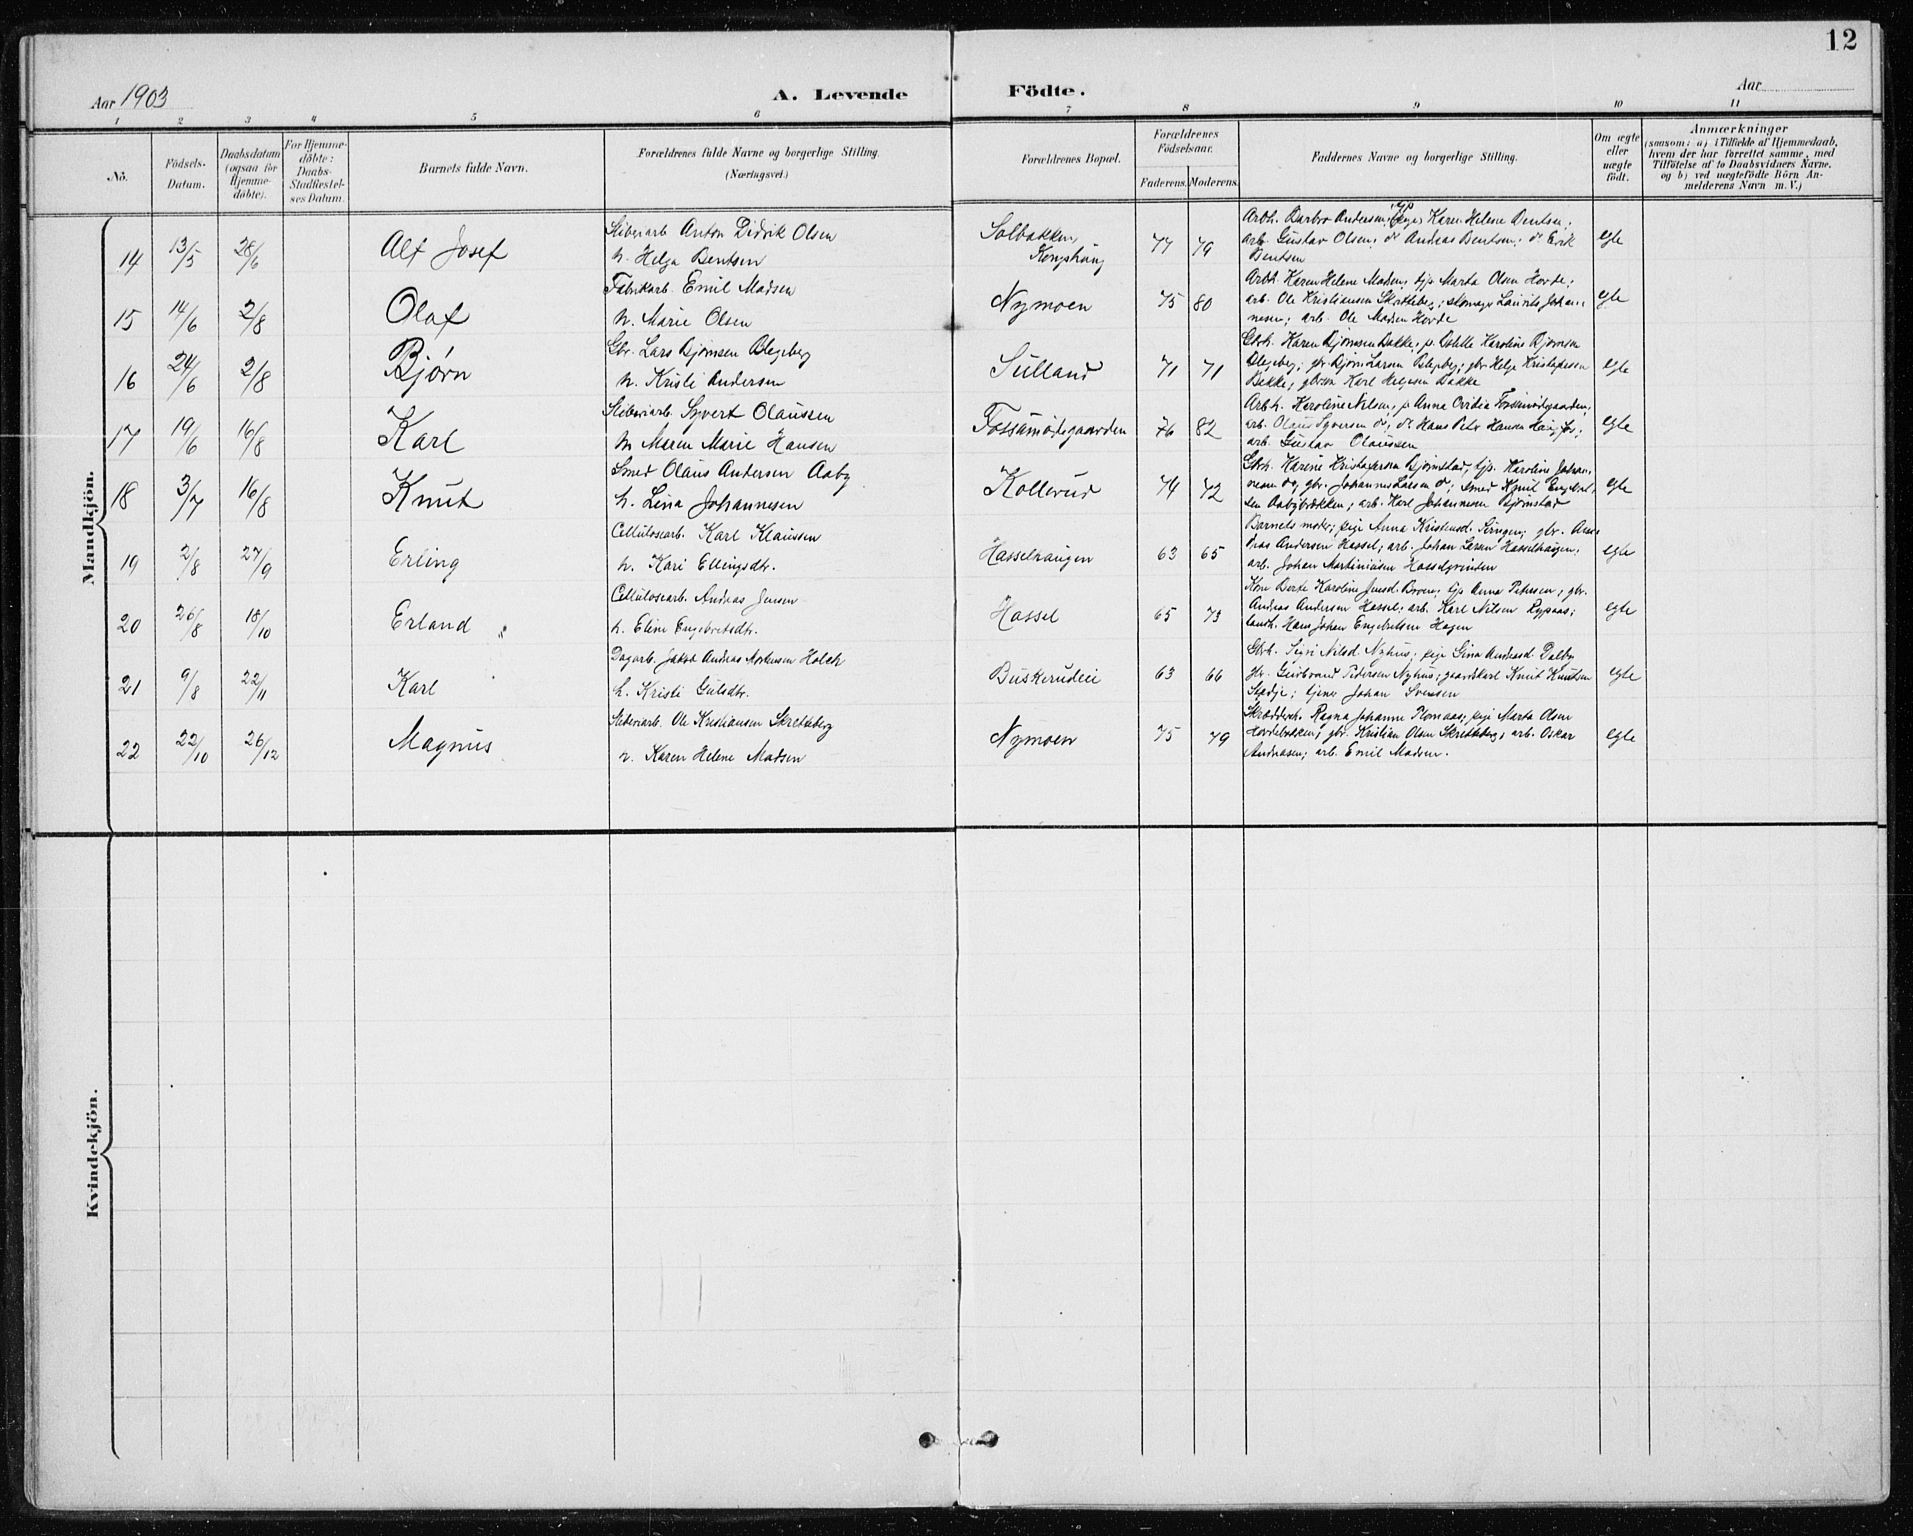 12
Aar 1903
A. Levende
Födte.
Aar
1 2 3 4 5 6 7 8 9 10 11
No.
Födsels-
Datum.
Daabsdatum
(ogsaa for
Hjemme-
döbte).
For Hjemme-
döbte:
Daabs-
Stadfæstel-
ses Datum.
Barnets fulde Navn.
Forældrenes fulde Navne og borgerlige Stilling.
(Næringsvei.)
Forældrenes Bopæl.
Forældrenes
Födselsaar.
Faderens. Moderens.
Faddernes Navne og borgerlige Stilling.
Om ægte
eller
uægte
födt.
Anmærkninger
(saasom: a) i Tilfælde af Hjemmedaab,
hvem der har forrettet samme, med
Tilföielse af to Daabsvidners Navne.
og b) ved uægtefödte Börn An-
melderens Navn m. V.)
Mandkjön.
14 13/5 28/6 Alf Josef
Sliberiarb. Anton Didrik Olsen
h. Helga Bentsen
Solbakken,
Kongshaug
77 79
Arbh. Barbro Andersen, Karen Helene Bentsen,
arb. Gustav Olsen, do Andreas Bentsen; do Erik
Bentsen
egte
15 14/6 2/8 Olaf
Fabrikarb. Emil Madsen
h. Marie Olsen
Nymoen
75 80
Arbh. Karen Helene Madsen, tjp. Marta Olsen Hovde;
arb. Ole Kristiansen Skretteberg; skomager Laurits Johan-
nesen; arb. Ole Madsen Hovde
egte
16 24/6 2/8 Bjørn
Gbr. Lars Bjørnsen Blegeberg
h. Kristi Andersen
Sulland
71 71
Gbrh. Karen Bjørnsen Bakke, p. Karoline Bjørnsen
Blegeberg; gbr. Bjørn Larsen Blegeberg; gbr. Helge Kristofersen
Bakke; gbrssøn Karl Helgesen Bakke
egte
17 19/6 16/8 Karl
Sliberiarb. Syvert Olaussen
h. Maren Marie Hansen
Fossumødsgaarden
76 82
Arbh. Karoline Nilsen, p. Anna Fossumødsgaarden,
arb. Olaus Syversen do, do Hans Petr. Hansen Haugfos;
arb. Gustav Olaussen
egte
18 3/7 16/8 Knut
Smed Olaus Andersen Aaby
h. Lina Johannesen
Kollerud
74 72
Gbrh. Karine Kristofersen Bjørnstad, tjp. Karoline Johan-
nesen do, gbr. Johannes Larsen do; smed Knut Engebret-
sen Aabybrækken; arb. Karl Johannesen Bjørnstad
egte
19 2/8 27/9 Erling
Cellulosearb. Karl Klaussen
h. Kari Ellingsdtr.
Hasselhaugen
63 65
Barnets moder; pige Anna Kristensd. Kringen; gbr. And-
reas Andersen Hassel; arb. Johan Larsen Hasselhaugen;
arb. Johan Martiniusen Hasselgrinden
egte
20 26/8 18/10 Erland
Cellulosearb. Andreas Jensen
h. Eline Engebretsdtr.
Hassel
65 73
Kone Berte Karoline Jensd. Boven; tjp. Anna Petersen; gbr.
Andreas Andersen Hassel; arb. Karl Nilsen Rypaas;
landh. Hans Johan Engebretsen Hagen
egte
21 9/8 22/11 Karl
Dagarb. Jakob Andreas Mortensen Holek
h. Kristi Gulsdtr.
Buskerudeie
63 66
Gbrh. Sigri Nilsd. Nyhus; pige Gina Andreasd. Dalby
gbr. Gudbrand Pedersen Nyhus; gaardskarl Knut Knutsen
tjener Johan Svensen
egte
22 22/10 26/12 Magnus
Sliberiarb. Ole Kristiansen Skretteberg
h. Karen Helene Madsen
Nymoen
75 79
Skrædderh. Ragna Johanne Plomaas; pige Marta Olsen
Hovdebakken; gbr. Kristian Olsen Skretteberg; arb. Oskar
Andreasen; arb. Emil Madsen.
egte
Kvindekjön.